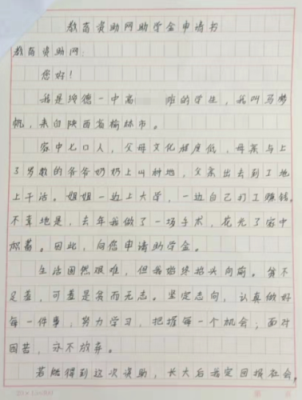 教育资助网助学金申请书
教育资助网:
您好!
我是绥德一中高 班的学生,我叫马梦
帆,来自陕西省榆林市。
家中七口人,父母文化程度低,母亲与上
了岁数的爷爷奶奶上山种地,父亲出去到了地
上干活。姐姐一边上大学,一边自己打工赚钱。
不幸地是,去年我做了一场手术,花光了家中
积蓄。因此,向您申请助学金。
生活固然艰难,但我始终抬头向前。贫不
足羞,可羞是贫而无志。坚定志向,认真做好
每一件事,努力学习,把握每一个机会,面对
困苦,亦不放弃。
若能得到这次资助,长大后我定回报社会,